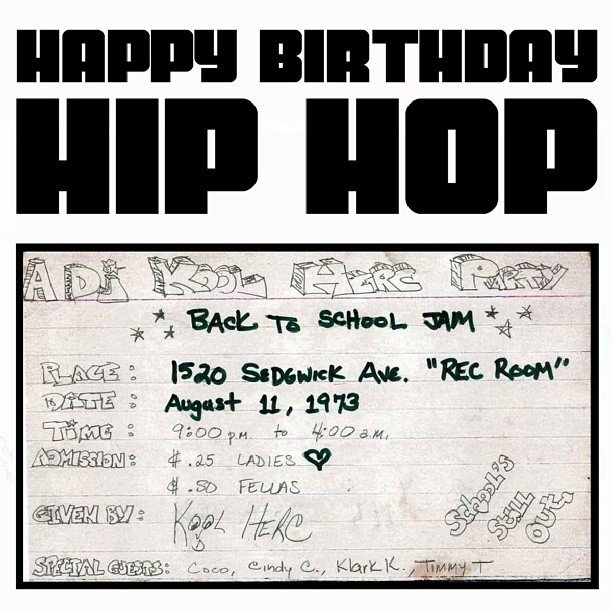 HAPPY BIRTHDAY
HIP HOP
A DJ KOOL HERC PARTY
BACK TO SCHOOL JAM
PLACE: 1520 SEDGWICK AVE. "REC ROOM"
DATE: August 11, 1973
TIME: 9:00 p.m. to 4:00 a.m.
ADMISSION: $.25 LADIES ♡
$.50 FELLAS
GIVEN BY: KOOL HERC
SCHOOL'S STILL OUT.
SPECIAL GUESTS: Coco, Cindy C., Klark K., Timmy T